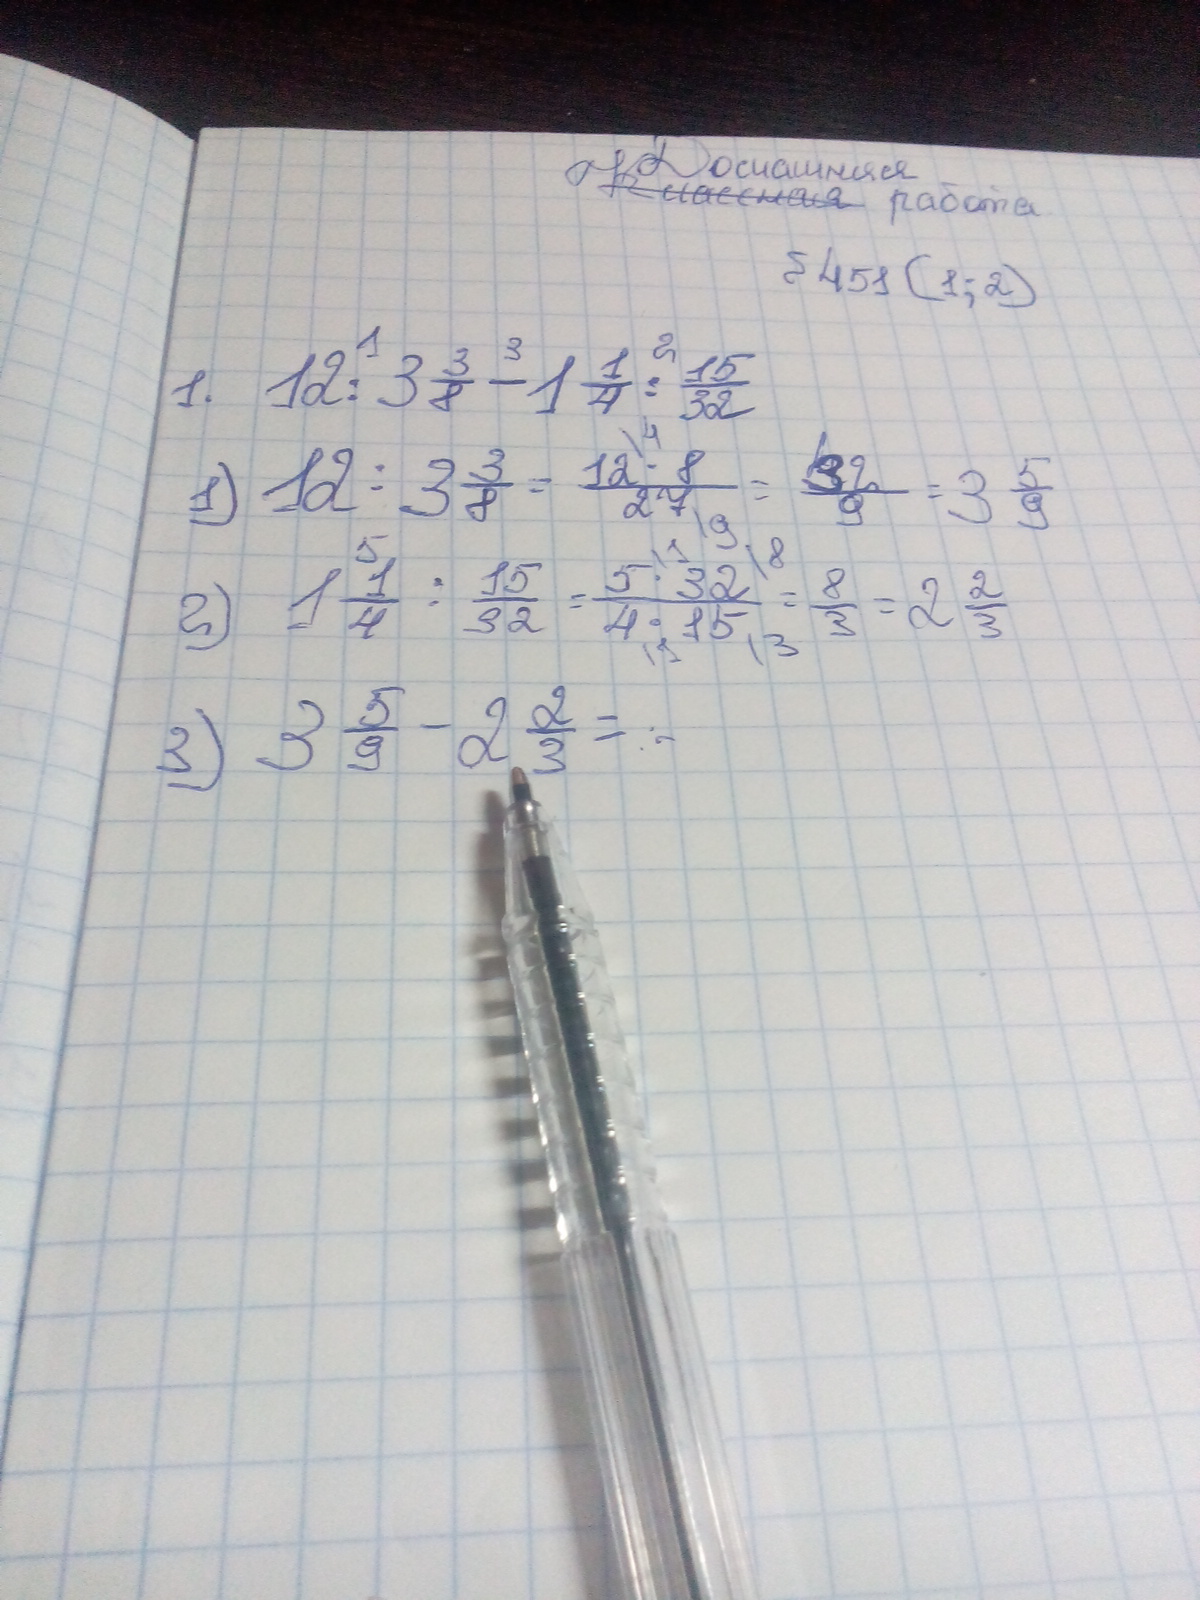 Домашняя
Классная работа
451 (1; 2)
1. 12 : 3 3/8 - 1 1/4 : 15/32
1) 12 : 3 3/8 = 12 · 8/27 = 32/9 = 3 5/9
2) 1 1/4 : 15/32 = 5 · 32/4 · 15 = 8/3 = 2 2/3
3) 3 5/9 - 2 2/3 =